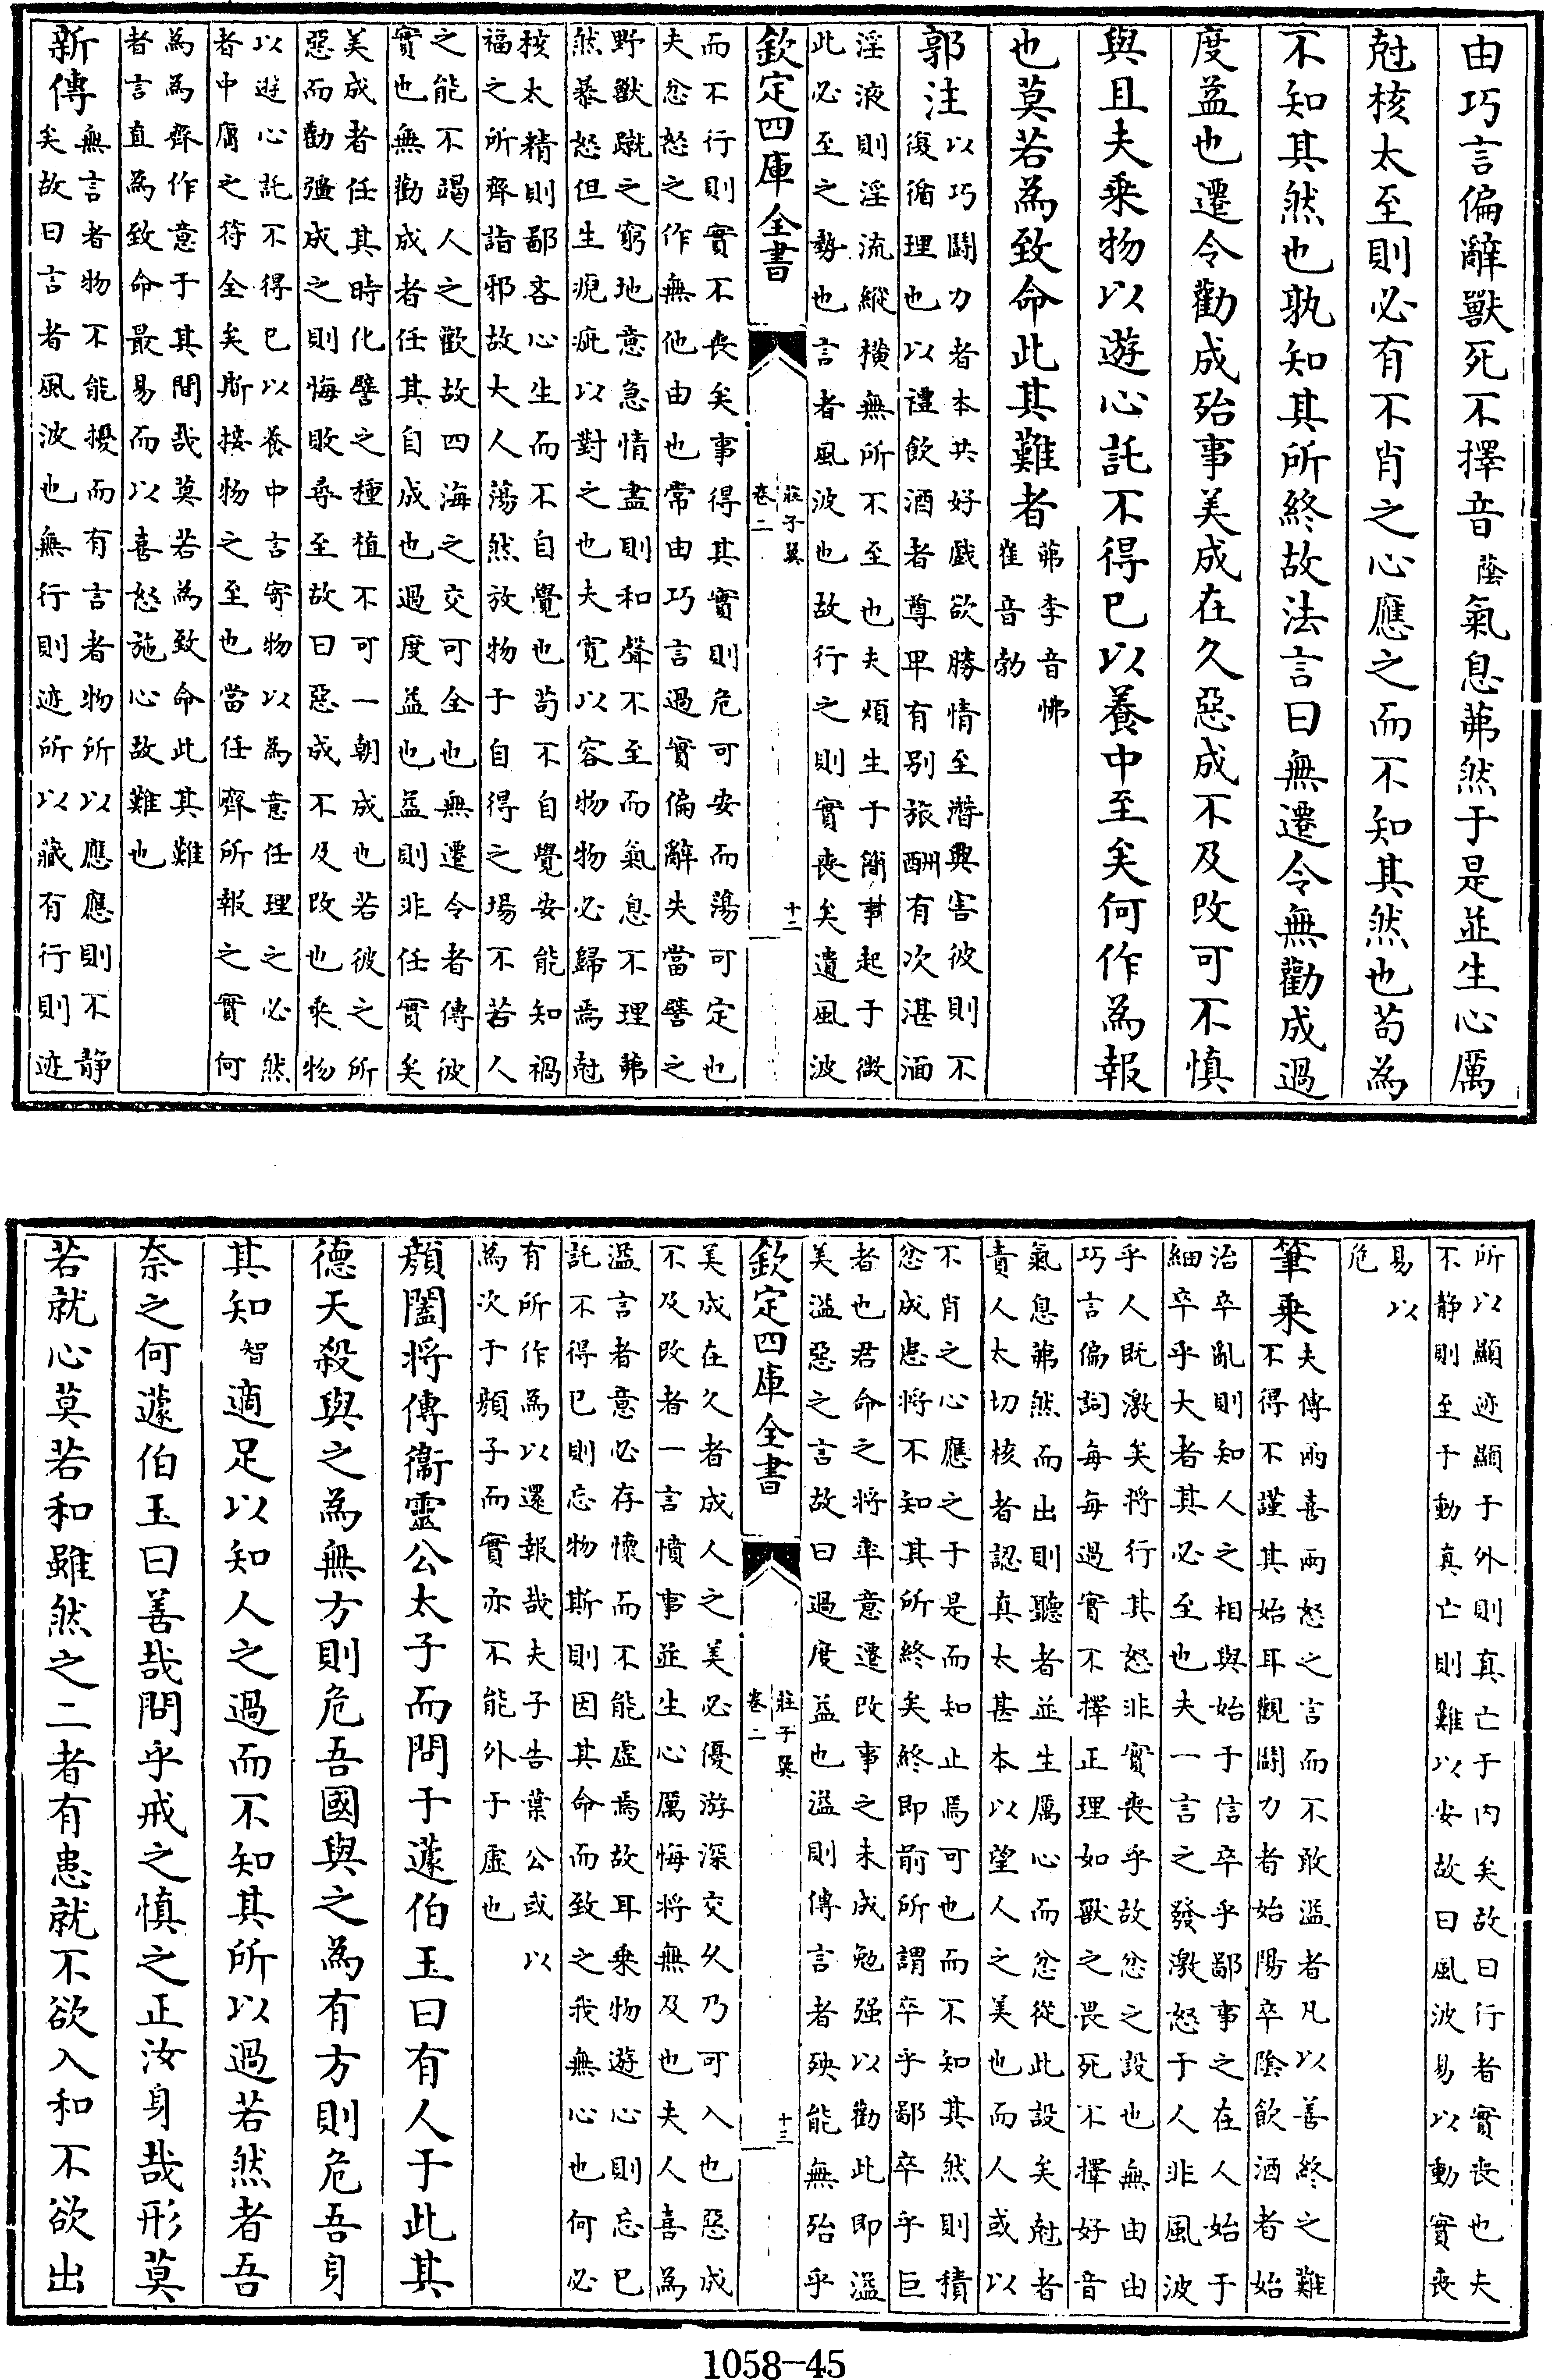 由巧言偏辭獸死不擇音蔭氣息茀然于是並生心厲
尅核太至則必有不肖之心應之而不知其然也苟為
不知其然也孰知其所終故法言曰無遷令無勸成過
度益也遷令勸成殆事美成在久惡成不及改可不慎
與且夫乗物以遊心託不得已以養中至矣何作為報
也莫若為致命此其難者茀李音怫
崔音勃
郭注以巧鬬力者本共好戯欲勝情至潛興害彼則不
復循理也以禮飲酒者尊卑有别旅酬有次湛湎
淫液則淫流縱横無所不至也夫煩生于簡事起于微
此必至之勢也言者風波也故行之則實喪矣遺風波
欽定四庫全書
莊子翼
卷二
十二
而不行則實不喪矣事得其實則危可安而蕩可定也
夫忿怒之作無他由也常由巧言過實偏辭失當譬之
野獸蹴之窮地意急情盡則和聲不至而氣息不理茀
然暴怒但生疵疵以對之也夫寛以容物物必歸焉尅
核太精則鄙吝心生而不自覺也苟不自覺安能知禍
福之所齊詣邪故大人蕩然放物于自得之塲不若人
之能不竭人之歡故四海之交可全也無遷令者傳彼
實也無勸成者任其自成也過度益也益則非任實矣
美成者任其時化譬之種植不可一朝成也若彼之所
惡而勸彊成之則悔敗尋至故曰惡成不及改也乗物
以遊心託不得已以養中言寄物以為意任理之必然
者中庸之符全矣斯接物之至也當任齊所報之實何
為為齊作意于其間哉莫若為致命此其難
者言直為致命最易而以喜怒施心故難也
新傳無言者物不能擾而有言者物所以應應則不静
矣故曰言者風波也無行則迹所以藏有行則迹
所以顯迹顯于外則真亡于内矣故曰行者實喪也夫
不静則至于動真亡則難以安故曰風波易以動實喪
易以
危
筆乗夫傳兩喜兩怒之言而不敢溢者凡以善終之難
不得不謹其始耳觀鬬力者始陽卒陰飲酒者始
治卒亂則知人之相與始于信卒乎鄙事之在人始于
細卒乎大者其必至也夫一言之發激怒于人非風波
乎人既激矣將行其怒非實喪乎故忿之設也無由由
巧言偏詞每每過實不擇正理如獸之畏死不擇好音
氣息茀然而出則聽者並生厲心而忿從此設矣尅者
責人太切核者認真太甚本以望人之美也而人或以
不肖之心應之于是而知止焉可也而不知其然則積
忿成患將不知其所終矣終即前所謂卒乎鄙卒乎巨
者也君命之將率意遷改事之未成勉强以勸此即溢
美溢惡之言故曰過度益也溢則傳言者殃能無殆乎
欽定四庫全書
莊子翼
卷二
十三
美成在久者成人之美必優游深交久乃可入也惡成
不及改者一言憤事並生心厲悔將無及也夫人喜為
溢言者意必存懷而不能虚焉故耳乗物遊心則忘己
託不得已則忘物斯則因其命而致之我無心也何必
有所作為以還報哉夫子告葉公或以
為次于顏子而實亦不能外于虚也
顏闔將傳衞靈公太子而問于蘧伯玉曰有人于此其
德天殺與之為無方則危吾國與之為有方則危吾身
其知智適足以知人之過而不知其所以過若然者吾
奈之何蘧伯玉曰善哉問乎戒之慎之正汝身哉形莫
若就心莫若和雖然之二者有患就不欲入和不欲出
1058-45